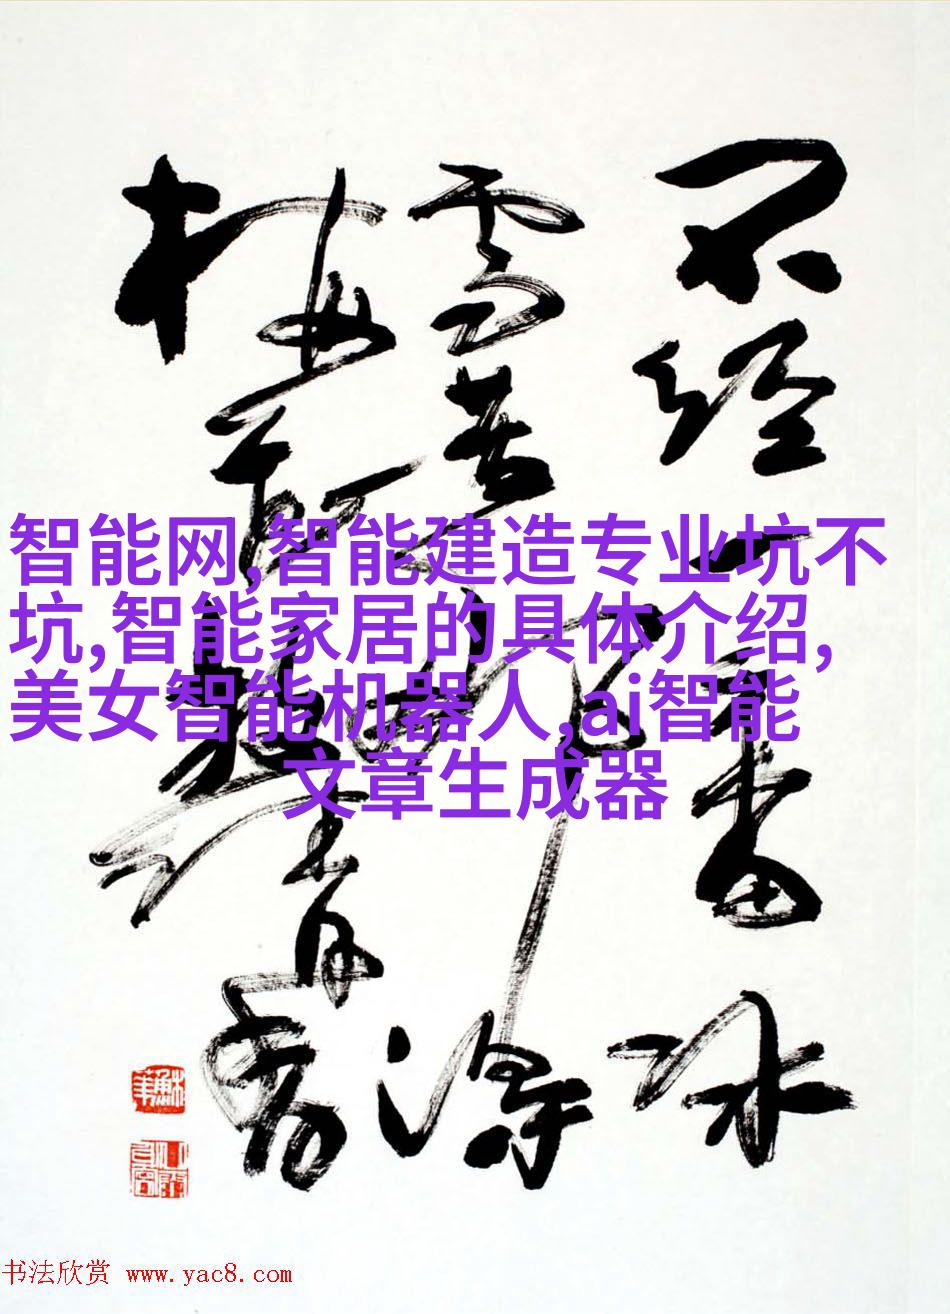 不经一番冰
雪苦那得
梅 清香
智能网,智能建造专业坑不
坑,智能家居的具体介绍,
美女智能机器人,ai智能
文章生成器
书法欣赏 www.yac8.com